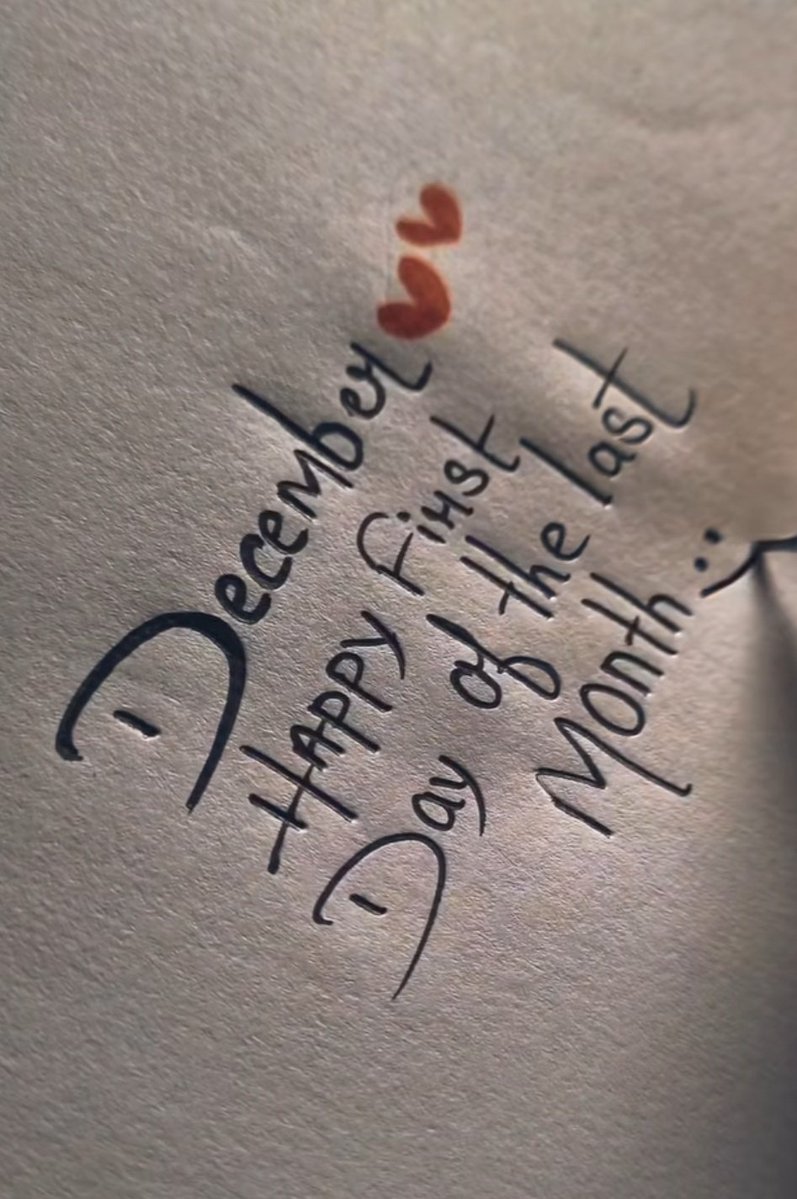 December
Happy First
Day of the last
Month :)